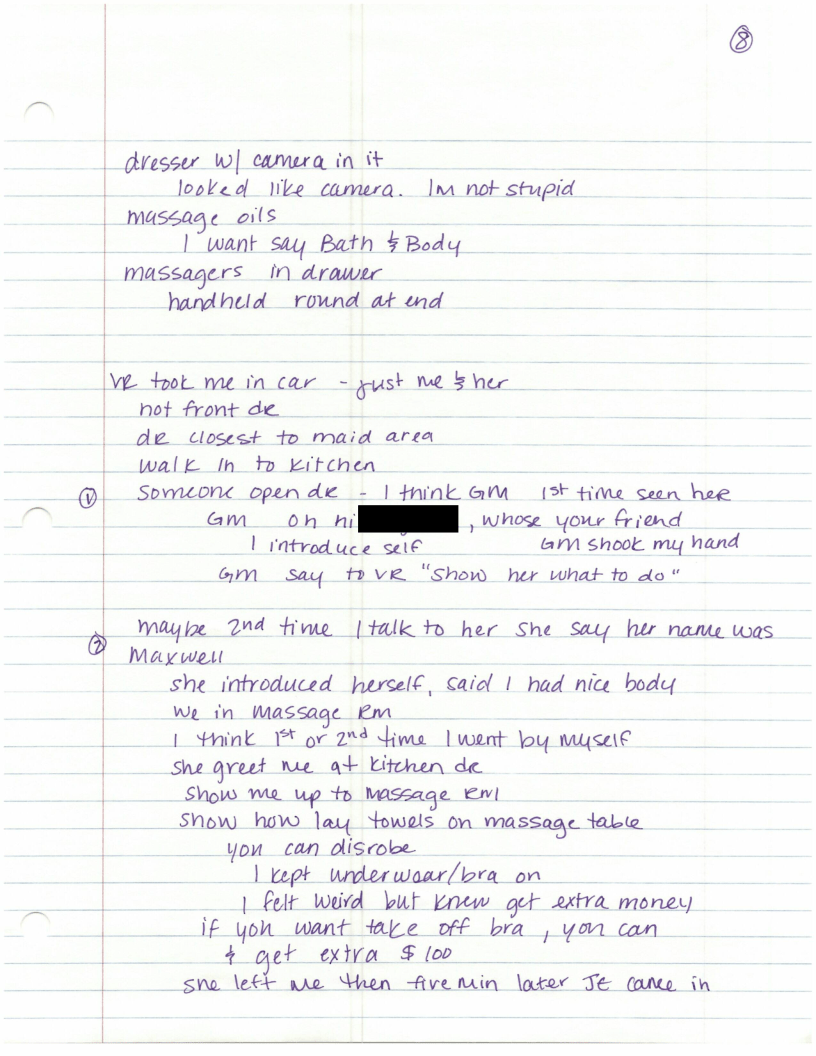 8
dresser w/ camera in it
looked like camera. Im not stupid
massage oils
I want say Bath & Body
massagers in drawer
handheld round at end
VR took me in car - just me & her
not front dr
dr closest to maid area
walk in to kitchen
1 someone open dr - I think GM 1st time seen her
GM oh hi , whose your friend
I introduce self GM shook my hand
GM say to VR "show her what to do"
maybe 2nd time I talk to her she say her name was
2 Maxwell
she introduced herself, said I had nice body
we in massage rm
I think 1st or 2nd time I went by myself
she greet me at kitchen dr
show me up to massage rm
show how lay towels on massage table
you can disrobe
I kept underwear/bra on
I felt weird but knew get extra money
if you want take off bra, you can
& get extra $100
she left me then five min later JE came in